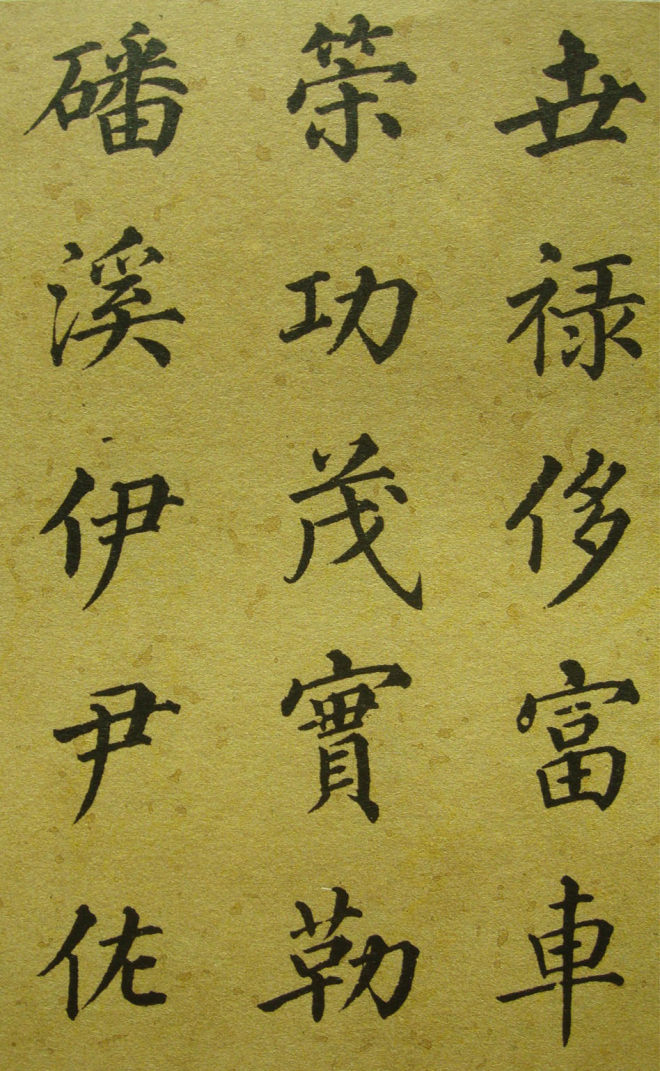 世禄侈富車
策功茂實勒
磻溪伊尹佐